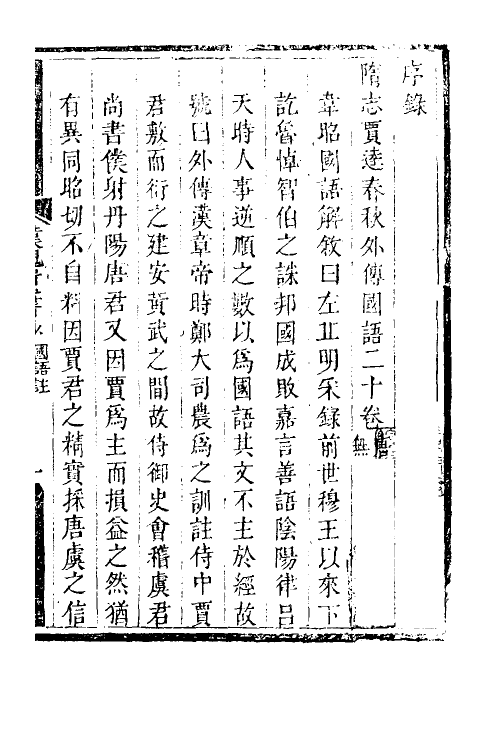 序錄
隋志賈逵春秋外傳國語二十卷唐無
韋昭國語解敘曰左丘明采錄前世穆王以來下
訖魯悼智伯之誅邦國成敗嘉言善語陰陽律呂
天時人事逆順之數以爲國語其文不主於經故
號曰外傳漢章帝時鄭大司農爲之訓註侍中賈
君敷而衍之建安黃武之間故侍御史會稽虞君
尚書僕射丹陽唐君又因賈爲主而損益之然猶
有異同昭切不自料因賈君之精實採唐虞之信
國語註
一